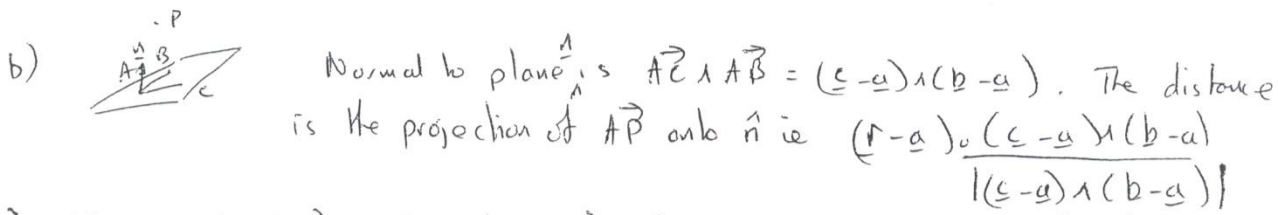 b)
. P
n̂ B
A
c
Normal to plane, n̂, is A⃗C ∧ A⃗B = (c̲-a̲)∧(b̲-a̲). The distance
is the projection of A⃗P onto n̂ ie (r̲-a̲)·(c̲-a̲)∧(b-a)
|(c̲-a̲)∧(b-a̲)|